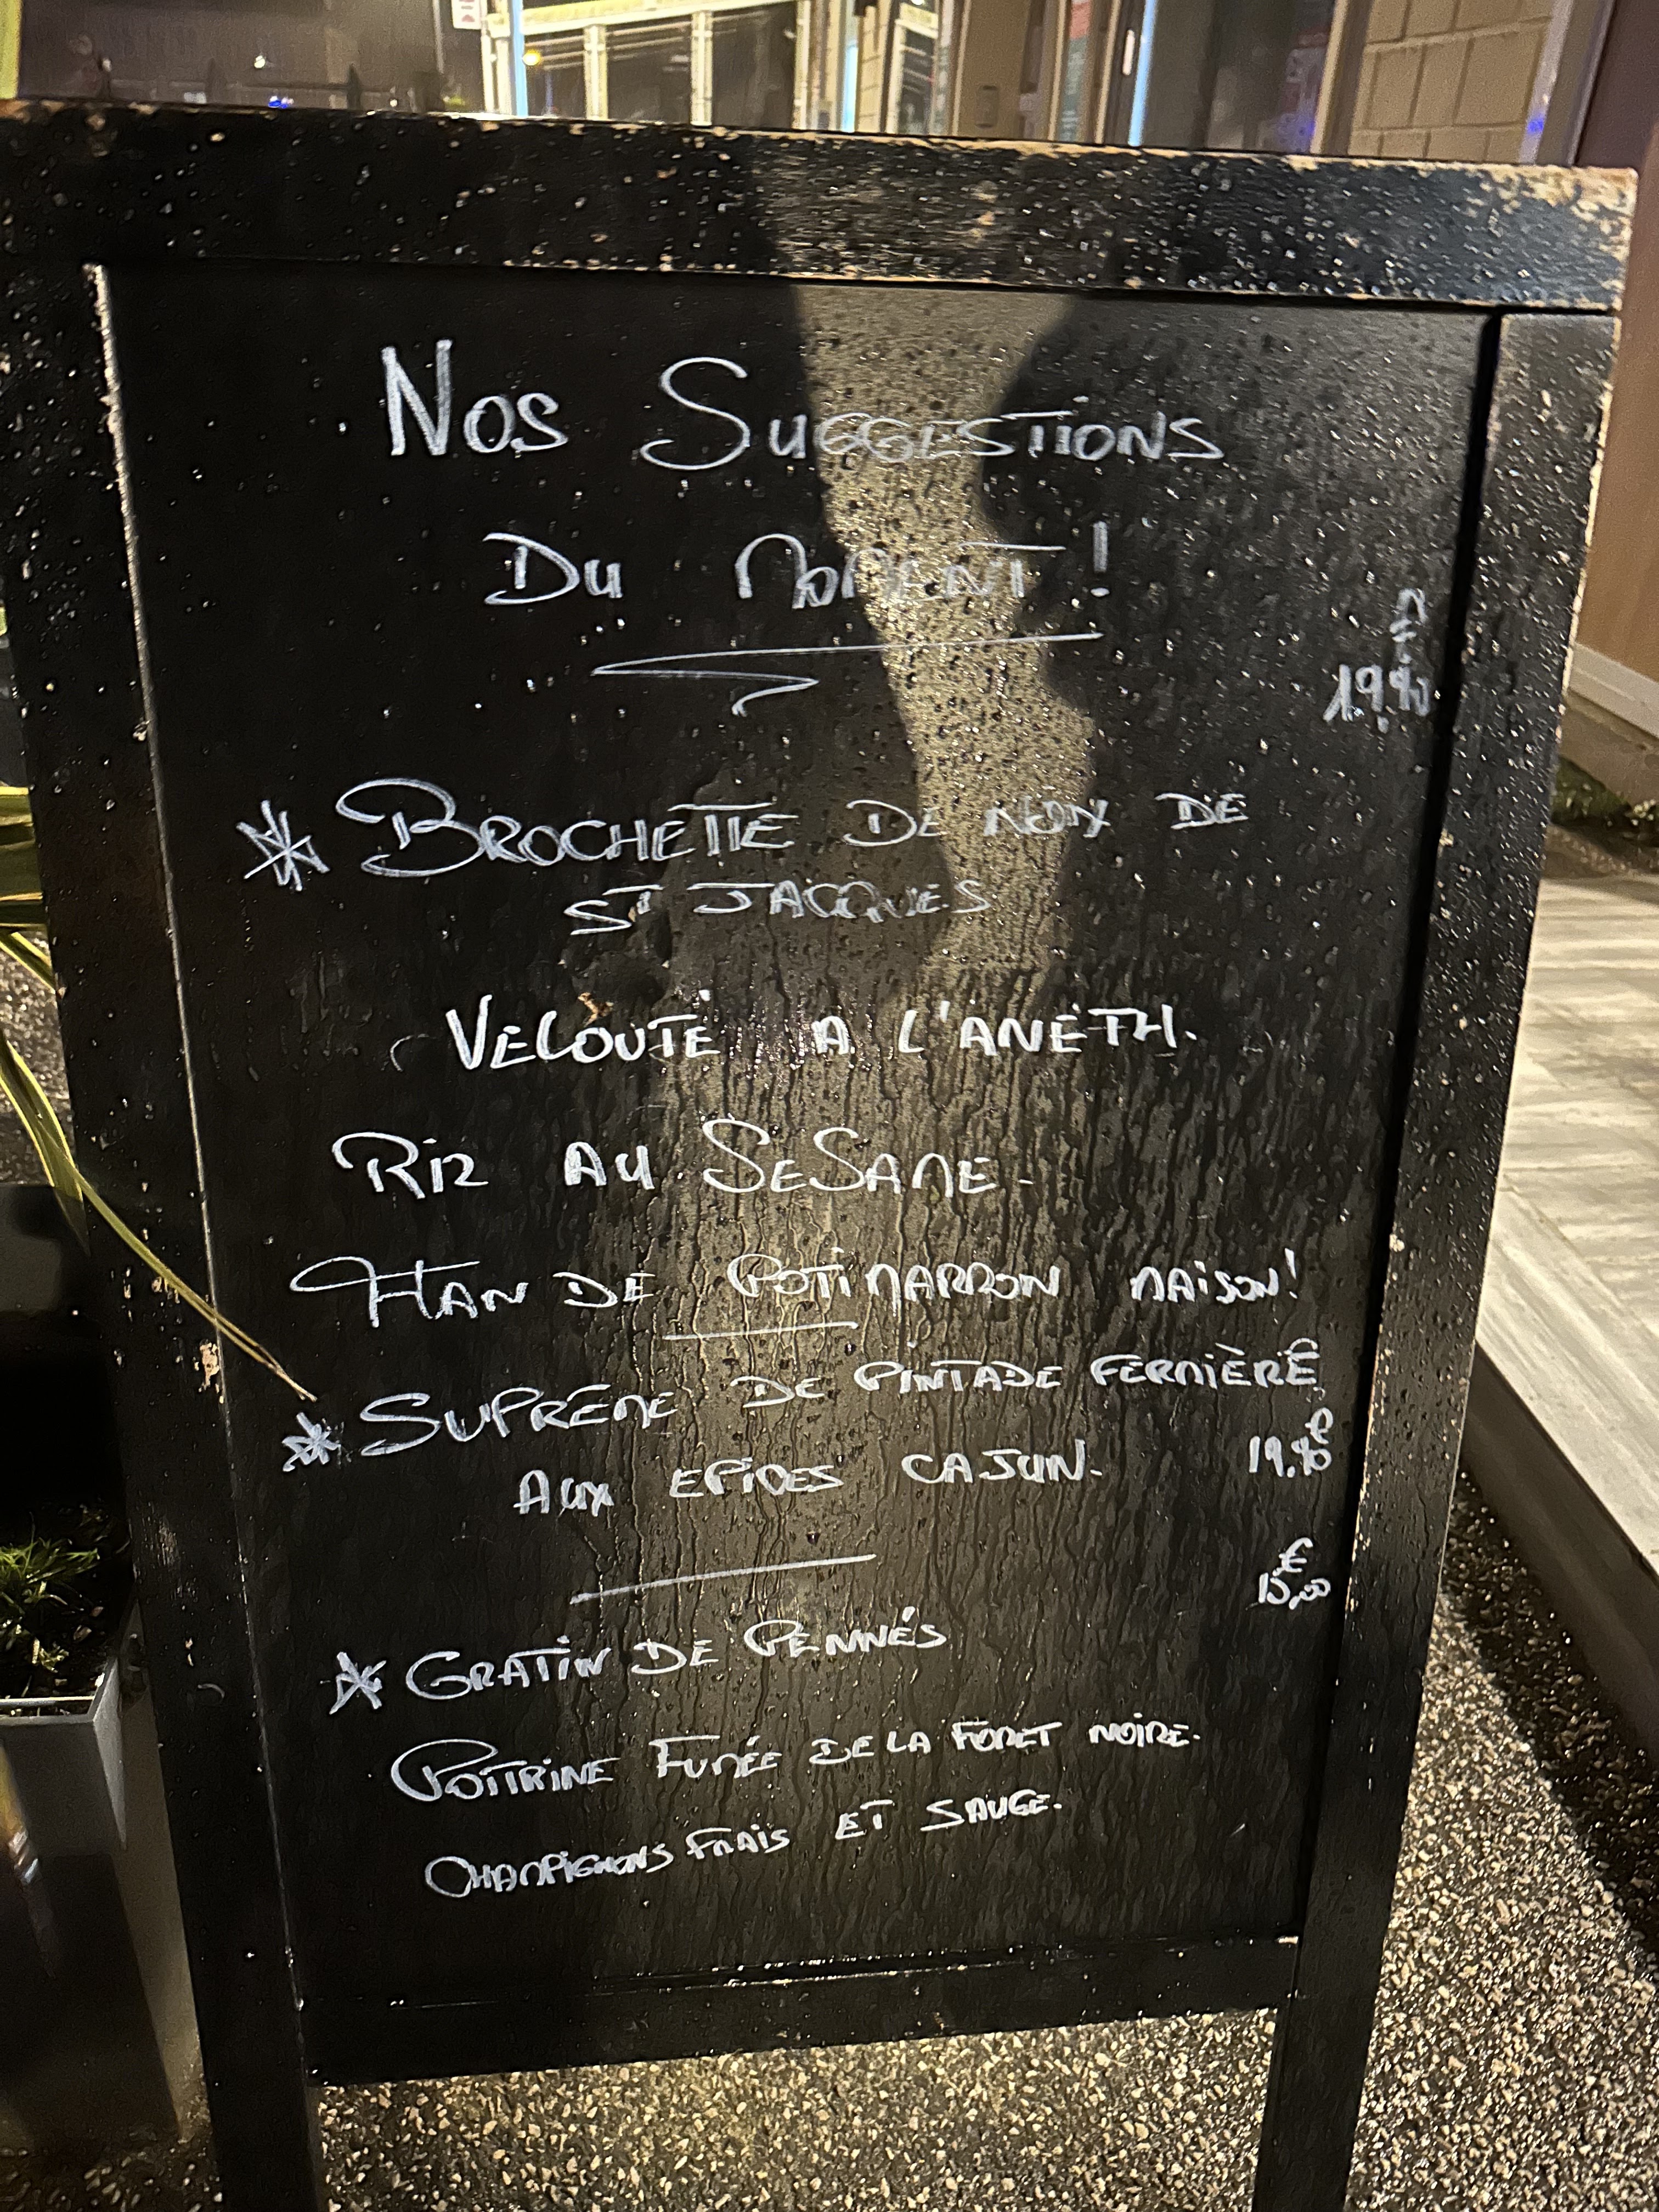 Nos Suggestions
Du Moment !
€
19.90
* Brochette de noix de
St Jacques
Velouté a l'aneth.
Riz au Sesame.
Flan de Potimarron maison!
* Suprême de pintade fermière
aux epices cajun.
19.90 €
€
15,00
* Gratin de Pennés
Poitrine Fumée de la Foret noire.
Champignons frais et sauge.